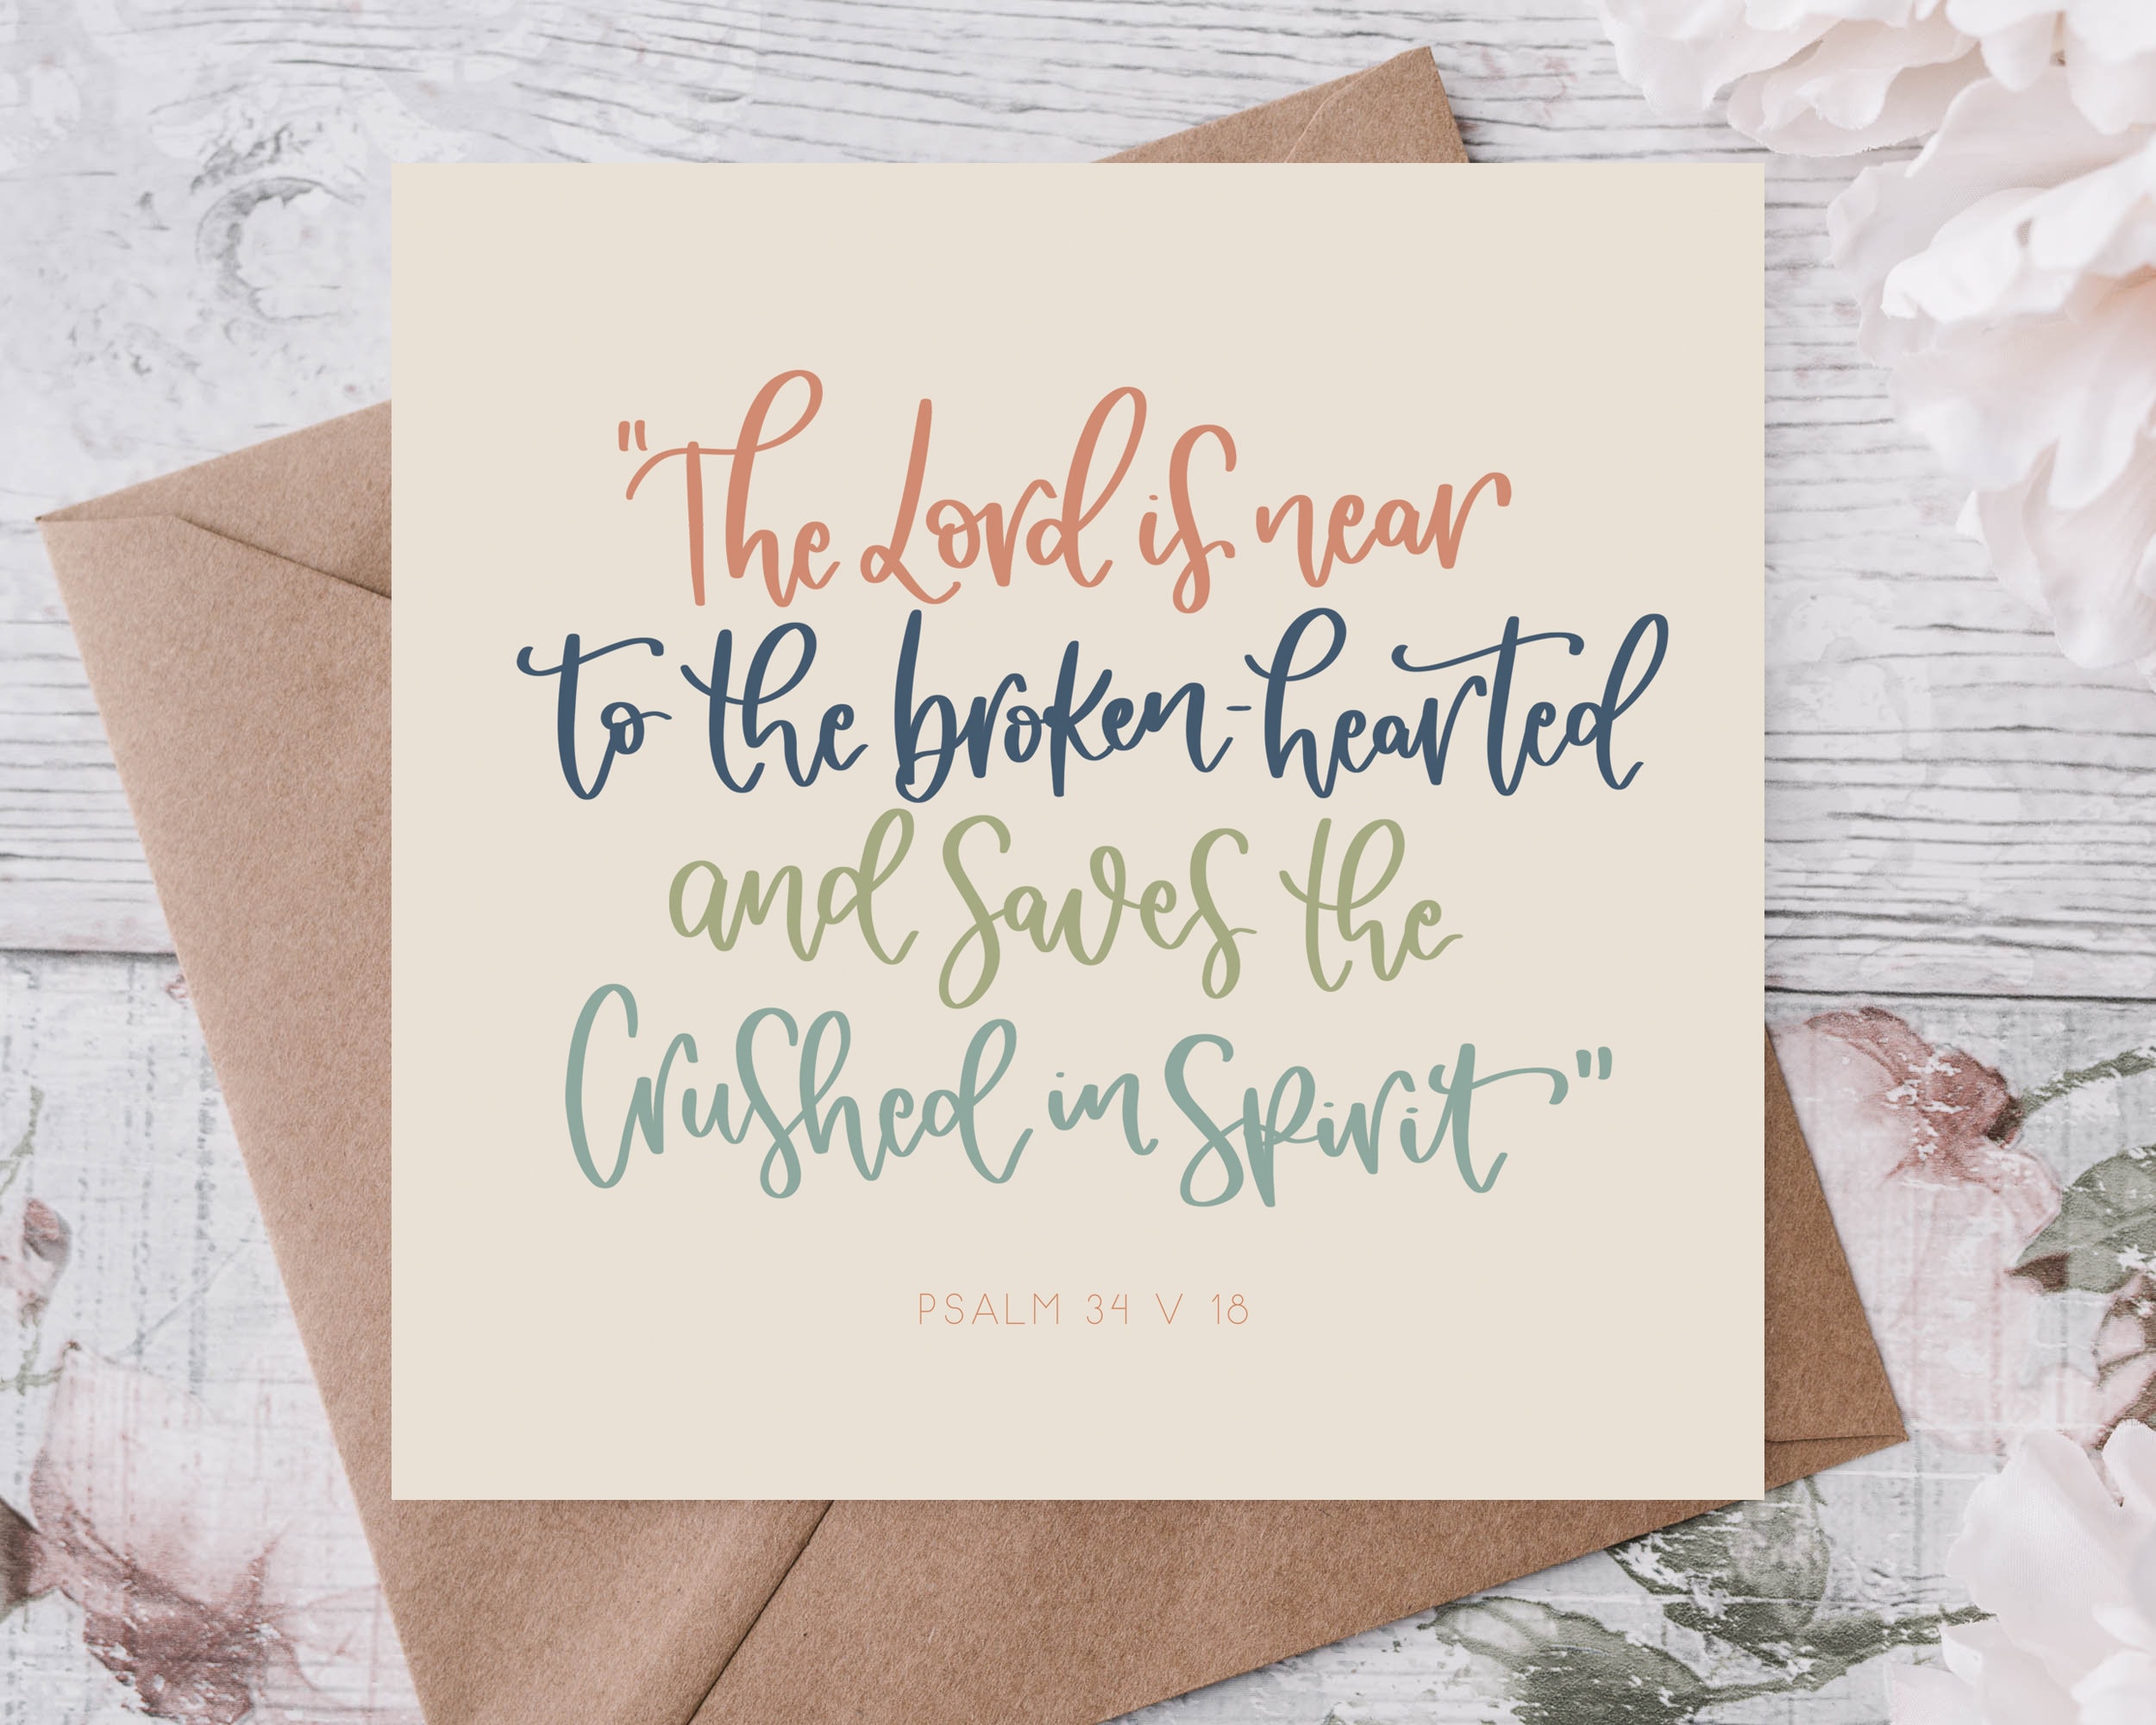 "The Lord is near
to the broken-hearted
and saves the
Crushed in Spirit"
PSALM 34 V 18